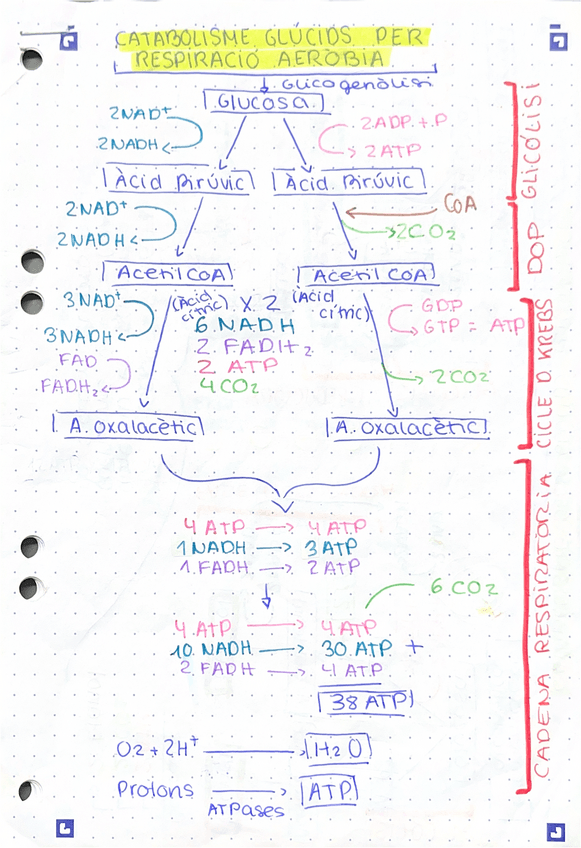 CATABOLISME GLÚCIDS PER
RESPIRACIÓ AERÒBIA
Glicogenòlisi
Glucosa
2NAD+
2NADH
2ADP+P
2ATP
GLICÒLISI
Àcid Pirúvic
Àcid Pirúvic
2NAD+
2NADH
CoA
2CO2
DOP
Acetil CoA
Acetil CoA
3NAD+
3NADH
FAD
FADH2
(Àcid cítric)
X 2
(Àcid cítric)
6 NADH
2 FADH2
2 ATP
4CO2
GDP
GTP = ATP
2CO2
CICLE D. KREBS
A. Oxalacètic
A. Oxalacètic
4 ATP → 4 ATP
1 NADH → 3 ATP
1 FADH → 2 ATP
6 CO2
4 ATP → 4 ATP
10 NADH → 30 ATP +
2 FADH → 4 ATP
38 ATP
CADENA RESPIRATÒRIA
O2 + 2H+ → H2O
Protons → ATP
ATPases